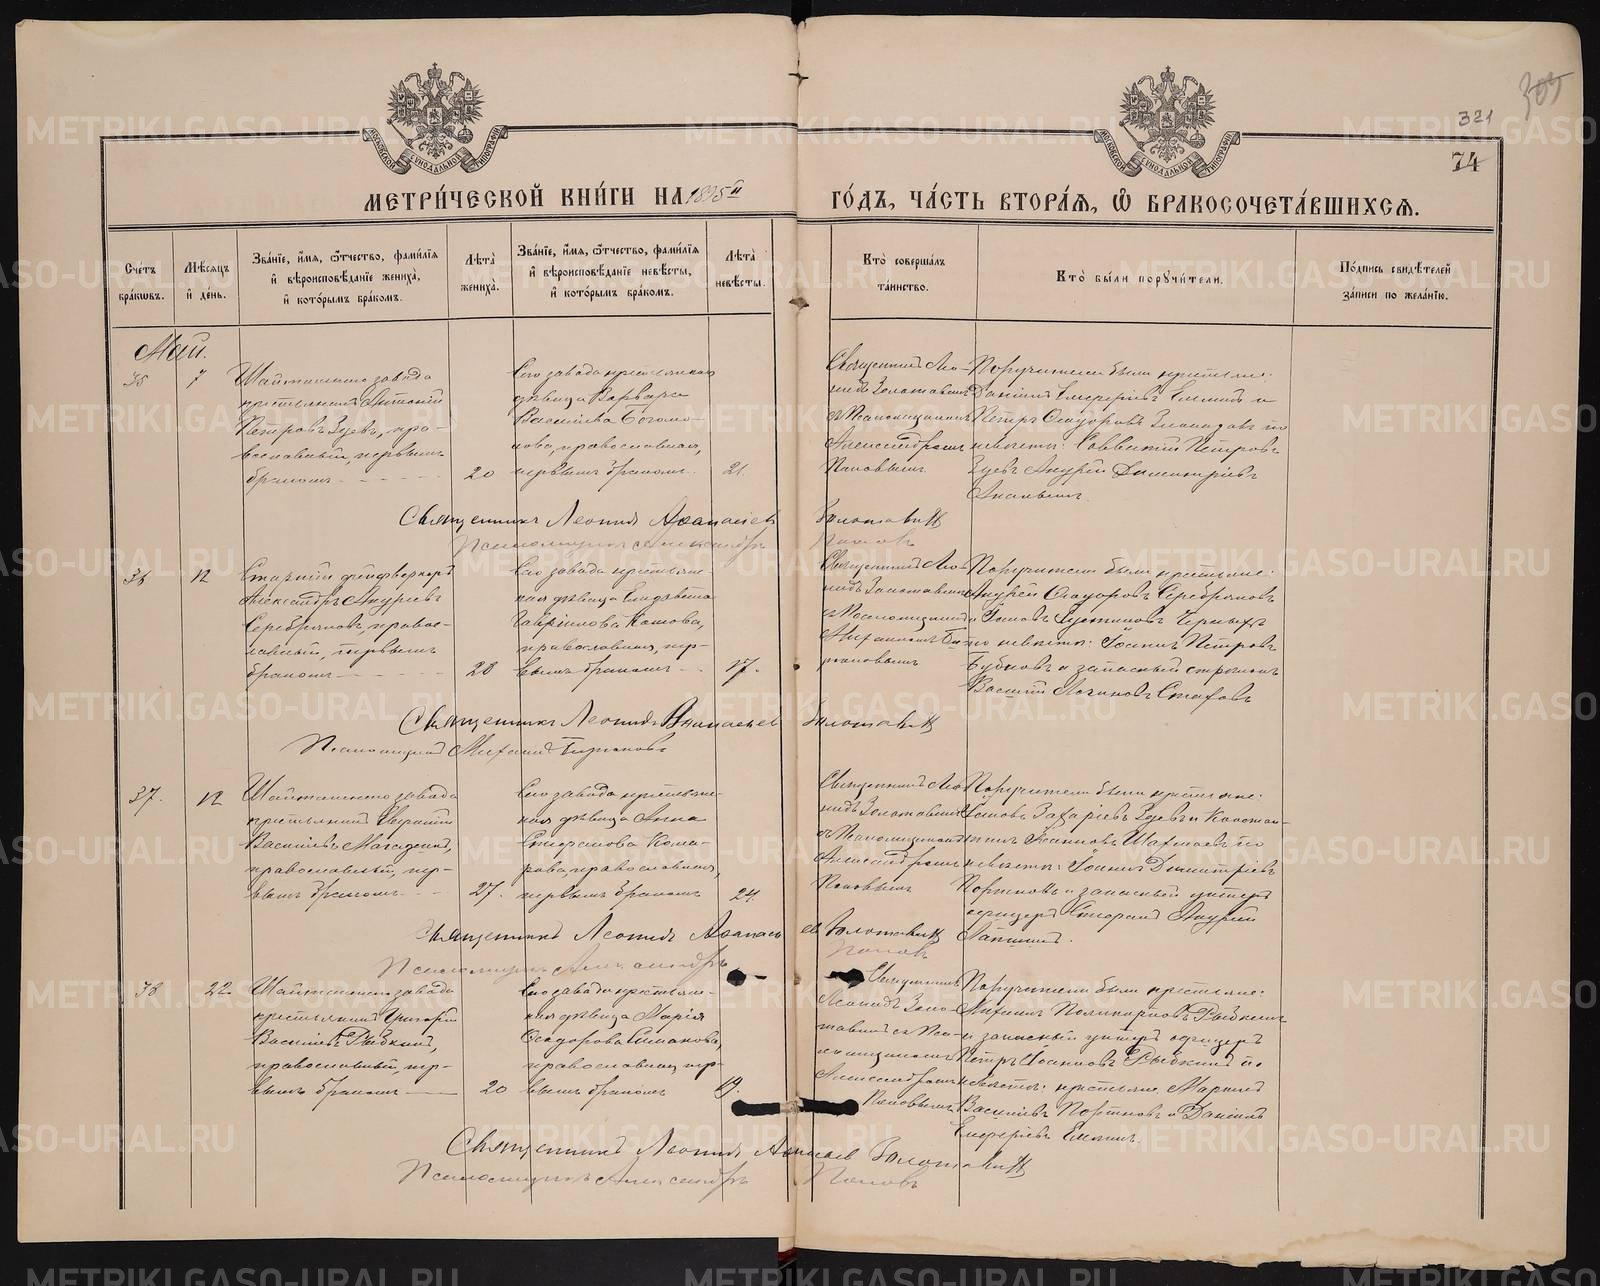 321
74
МЕТРИЧЕСКОЙ КНИГИ НА 1895й ГОДЪ, ЧАСТЬ ВТОРАЯ, Ѽ БРАКОСОЧЕТАВШИХСЯ.
МОСКОВСКОЙ СУНОДАЛЬНОЙ ТИПОГРАФІИ
МОСКОВСКОЙ СУНОДАЛЬНОЙ ТИПОГРАФІИ
Счетъ браковъ.
Мѣсяцъ и день.
Званіе, имя, ѿчество, фамилія и вѣроисповѣданіе жениха, и которымъ бракомъ.
Лѣта жениха.
Званіе, имя, ѿчество, фамилія и вѣроисповѣданіе невѣсты, и которымъ бракомъ.
Лѣта невѣсты.
Кто совершалъ таинство.
Кто были поручители.
Подпись свидѣтелей записи по желанію.
Май.
35
7
Шайтанскаго завода
крестьянинъ Антоній
Петровъ Зуевъ, пра-
вославный, первымъ
бракомъ
20
Сего завода крестьянская
дѣвица Варвара
Васильева Богомо-
лова, православная,
первымъ бракомъ.
21.
Священникъ Лео-
нидъ Золотавинъ
съ Псаломщикомъ
Александромъ
Поповымъ
Поручители были крестьяне:
Даніилъ Елеферіевъ Еминъ и
Петръ Ѳеодоровъ по
невѣстѣ: Савватій Петровъ
Зуевъ и Андрей Димитріевъ
Ананьинъ.
Священникъ Леонидъ Аѳанасьевъ Золотавинъ
Псаломщикъ Александръ Поповъ
36
12
Старшій фейерверкеръ
Александръ Андреевъ
Серебряковъ, правос-
лавный, первымъ
бракомъ
28
Сего завода крестьян-
ская дѣвица Елизавета
Гавріилова Котова,
православная, пер-
вымъ бракомъ
17.
Священникъ Лео-
нидъ Золотавинъ
съ Псаломщикомъ
Михаиломъ Би-
рюковымъ
Поручители были крестьяне:
Андрей Ѳеодоровъ Серебряковъ
и Іаковъ Іустиновъ Черныхъ
по невѣстѣ: Іоаннъ Петровъ
Бубновъ и запасный стрѣлокъ
Василій Логиновъ Стаховъ
Священникъ Леонидъ Аѳанасьевъ Золотавинъ
Псаломщикъ Михаилъ Бирюковъ
37.
12
Шайтанскаго завода
крестьянинъ
Васильевъ Магадеевъ,
православный, пер-
вымъ бракомъ
27.
Сего завода крестьян-
ская дѣвица Анна
Стефанова Кома-
рова, православная,
первымъ бракомъ
24.
Священникъ Лео-
нидъ Золотавинъ
съ Псаломщикомъ
Александромъ
Поповымъ
Поручители были крестьяне:
Іаковъ Захаріевъ Зуевъ и Констан-
тинъ Іоанновъ Шахмаевъ по
невѣстѣ: Іоаннъ Димитріевъ
Портновъ и запасный унтеръ
офицеръ Андрей
Лапшинъ.
Священникъ Леонидъ Аѳанасьевъ Золотавинъ
Псаломщикъ Александръ Поповъ
38
22.
Шайтанскаго завода
крестьянинъ Григорій
Васильевъ Рыбкинъ,
православный, пер-
вымъ бракомъ
20
Сего завода крестьян-
ская дѣвица Марія
Ѳеодорова Симакова,
православная, пер-
вымъ бракомъ
19.
Священникъ
Леонидъ Золо-
тавинъ съ Пса-
ломщикомъ
Александромъ
Поповымъ
Поручители были крестьяне:
Поликарповъ Рыбкинъ
и запасный унтеръ офицеръ
Петръ Іоанновъ Рыбкинъ по
невѣстѣ: крестьяне Маркелъ
Васильевъ Портновъ и Даніилъ
Елеферіевъ Еминъ.
Священникъ Леонидъ Аѳанасьевъ Золотавинъ
Псаломщикъ Александръ Поповъ
METRIKI.GASO-URAL.RU